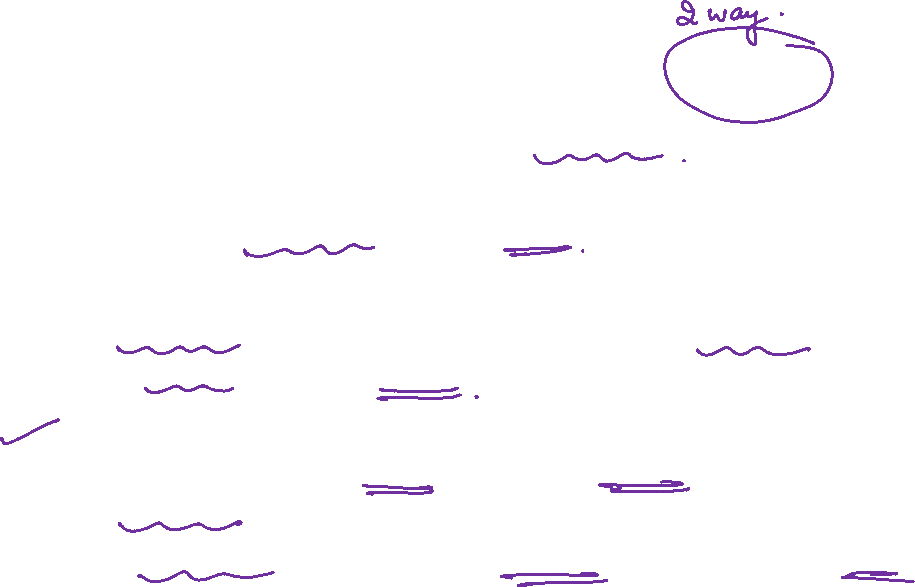 2 way.